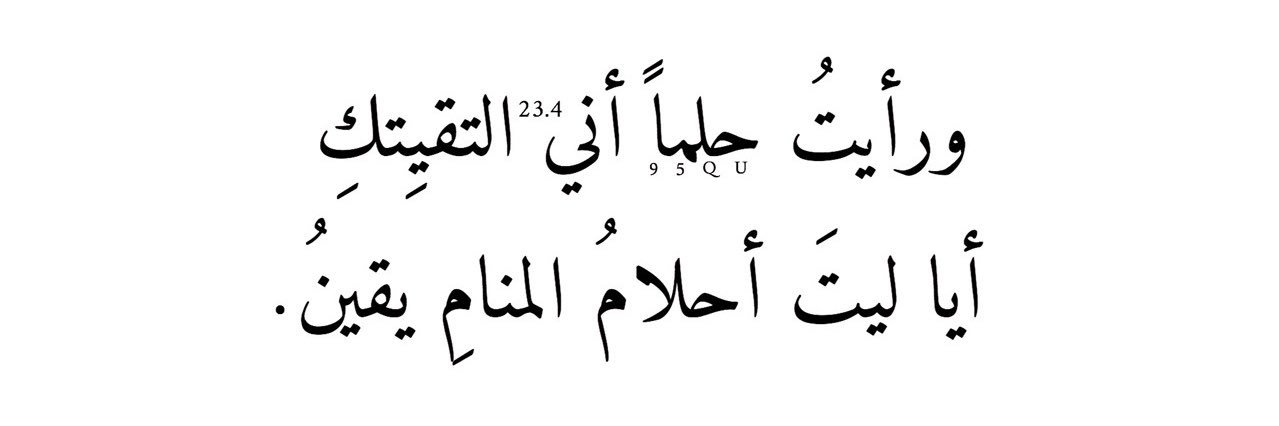 ورأيتُ حلماً أني التقيِتكِ
23.4
95QU
أيا ليتَ أحلامُ المنامِ يقينُ.